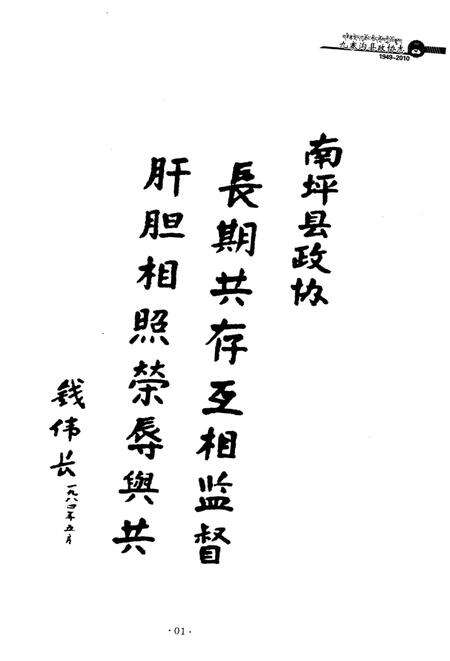 九寨沟县政协志
1949-2010
南坪县政协
長期共存互相监督
肝胆相照荣辱與共
钱伟长
一九八四年五月
·01·